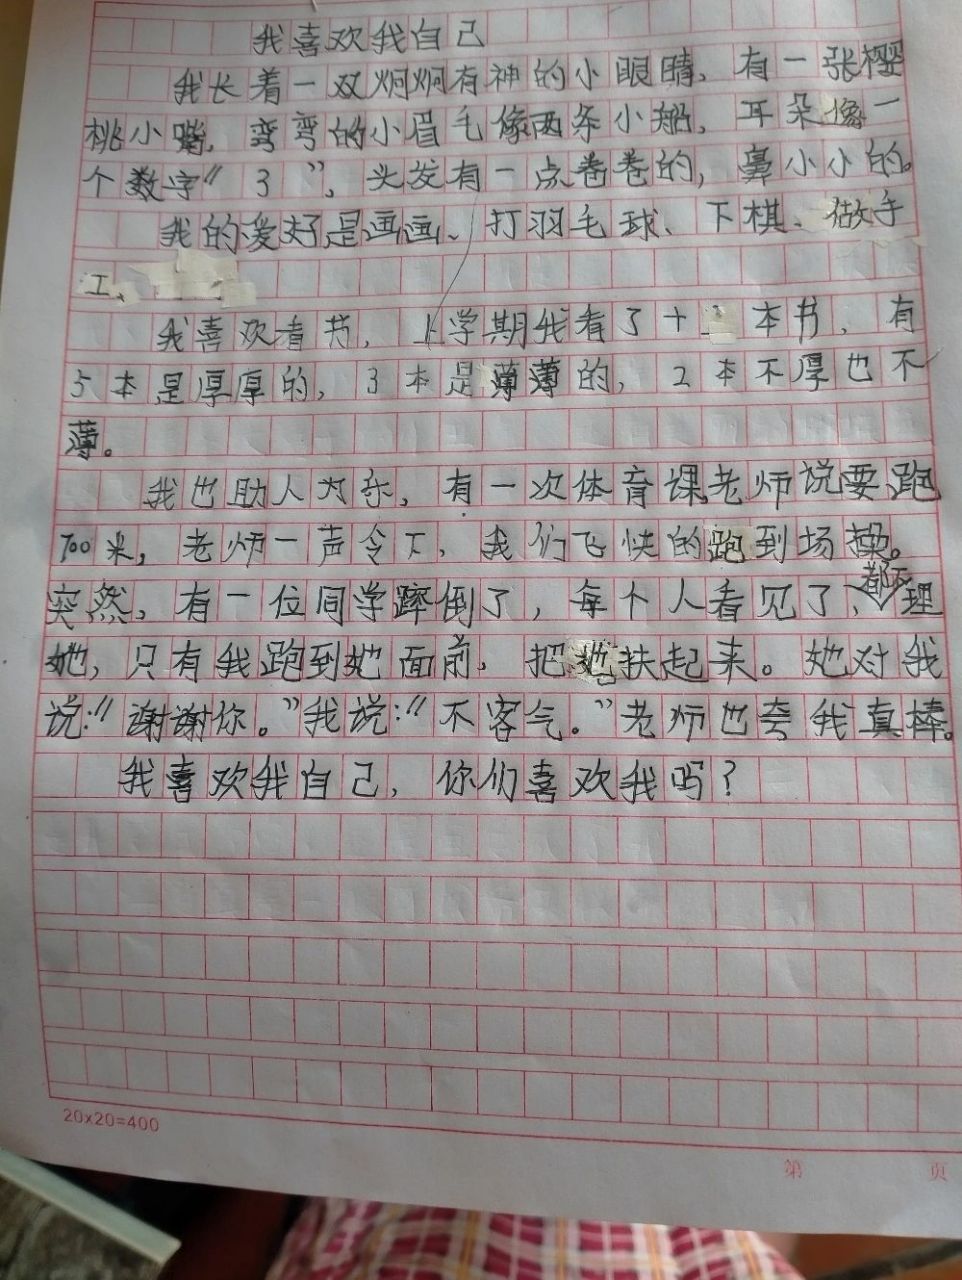 我喜欢我自己
我长着一双炯炯有神的小眼睛，有一张樱
桃小嘴，弯弯的小眉毛像两条小船，耳朵像一
个数字“3”，头发有一点卷卷的，鼻小小的。
我的爱好是画画、打羽毛球、下棋、做手
工、
我喜欢看书，上学期我看了十本书，有
5本是厚厚的，3本是薄薄的，2本不厚也不
薄。
我也助人为乐，有一次体育课老师说要跑
700米，老师一声令下，我们飞快的跑到场操。
突然，有一位同学蹿倒了，每个人看见了，都不理
她，只有我跑到她面前，把她扶起来。她对我
说：“谢谢你。”我说：“不客气。”老师也夸我真棒。
我喜欢我自己，你们喜欢我吗？
20×20=400
第 页